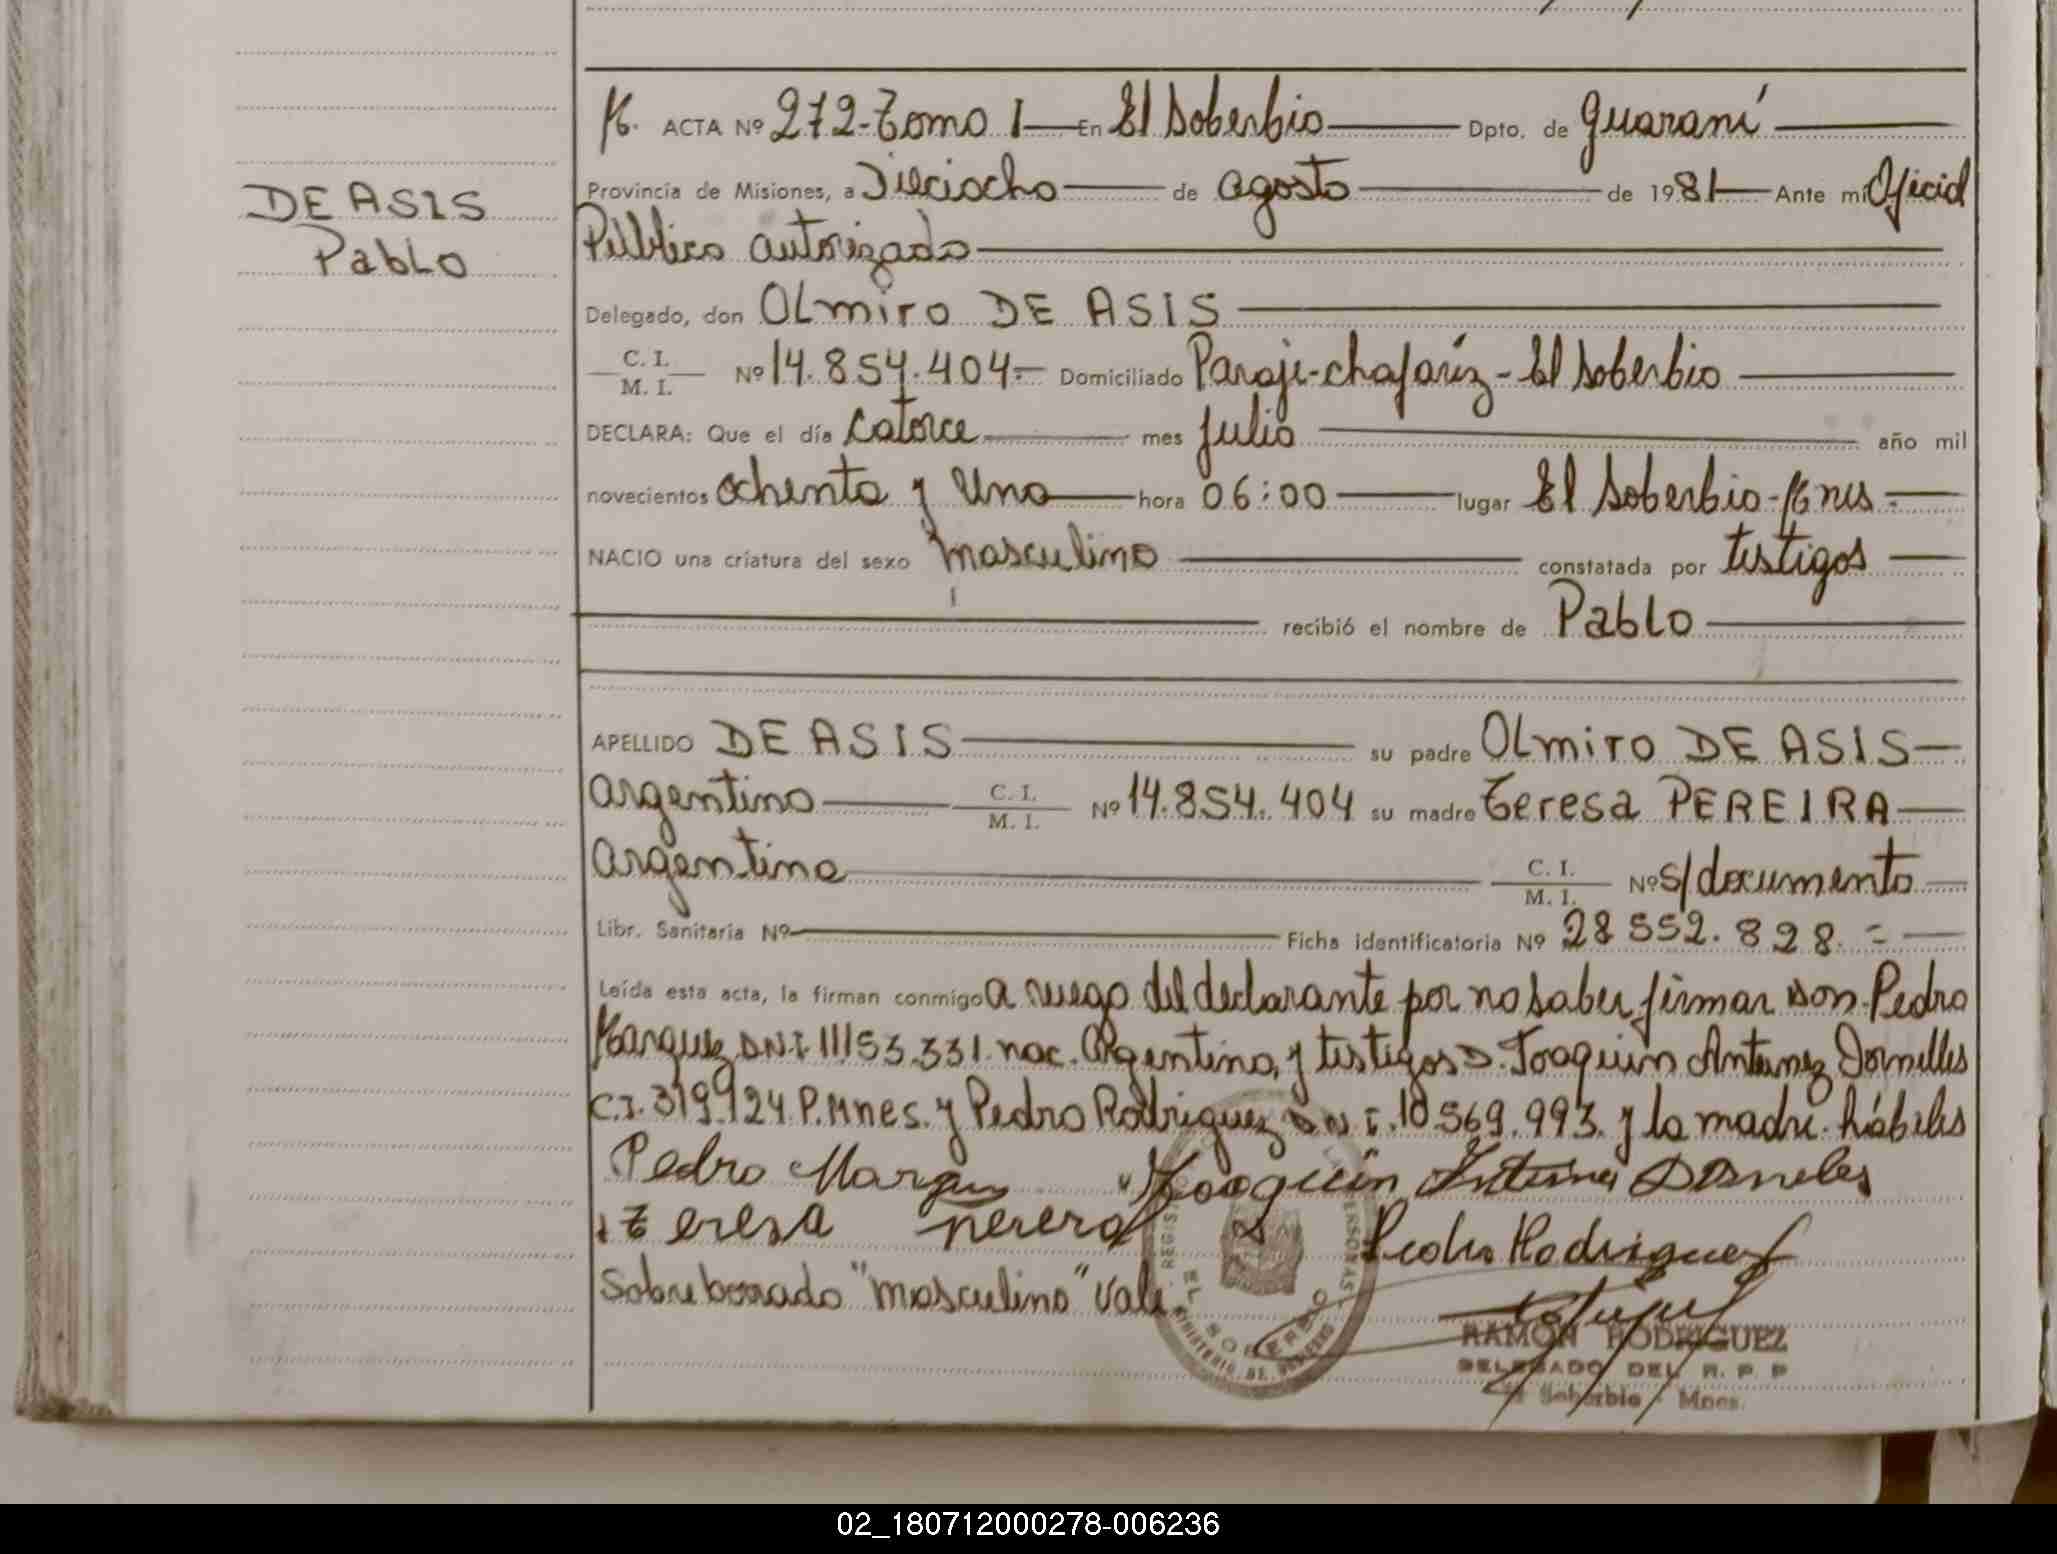 DE ASIS
Pablo
M. ACTA Nº 272-Tomo I En El Soberbio Dpto. de Guaraní
Provincia de Misiones, a Dieciocho de agosto de 1981 Ante mí Oficial
Público autorizado
Delegado, don OLmiro DE ASIS
C. I.
M. I. Nº 14.854.404.- Domiciliado Paraje-chafaríz-El Soberbio
DECLARA: Que el día catorce mes julio año mil
novecientos ochenta y uno hora 06:00 lugar El Soberbio-Mnes-
NACIO una criatura del sexo masculino constatada por testigos
recibió el nombre de Pablo
APELLIDO DE ASIS su padre OLmiro DE ASIS
argentino C. I. M. I. Nº 14.854.404 su madre Teresa PEREIRA
argentina C. I. M. I. Nº s/documento
Libr. Sanitaria Nº Ficha identificatoria Nº 28 552.828.-
Leída esta acta, la firman conmigo a ruego del declarante por no saber firmar don Pedro
Marquez D.N.I 11153.331. nac. Argentina, y testigos D. Joaquin Antunez Dornelles
C.I. 319.924 P.Mnes. y Pedro Rodriguez D.N.I. 10.569.993. y la madre. hábiles
Pedro Marquez Joaquin Antunez Dorneles
Teresa Perera Pedro Rodriguez
Sobreborrado "masculino" vale.
EL SOBERBIO
MINISTERIO DE GOBIERNO
RAMON RODRIGUEZ
DELEGADO DEL R. P. P
El Soberbio - Mnes.
02_180712000278-006236